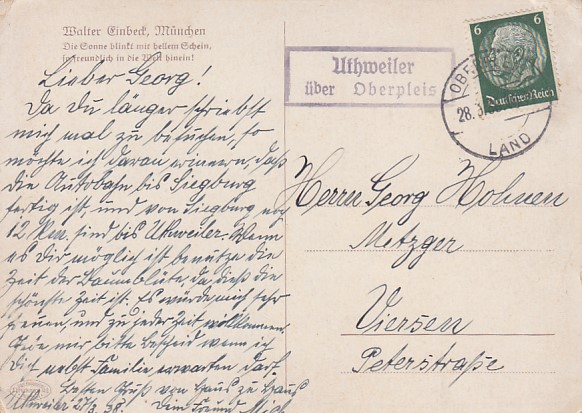 Walter Einbeck, München
Die Sonne blinkt mit hellem Schein,
so freundlich in die Welt hinein!
Lieber Georg!
Da Du länger schriebst
mich mal zu besuchen, so
möchte ich daran erinnern, daß
die Autobahn bis Siegburg
fertig ist, und von Siegburg noch
12 Km. sind bis Uthweiler. Wenn
es dir möglich ist benutze die
Zeit der Baumblüte, da dieß die
schönste Zeit ist. Es würde mich sehr
freuen, und zu jeder Zeit willkommen.
Gebe mir bitte bescheid wenn ich
Dich nebst Familie erwarten darf.
Besten Gruß von Haus zu Haus
Uthweiler 27/3. 38. Dein Freund Mich
Uthweiler
über Oberpleis
6 6
Deutsches Reich
28.3.
LAND
Herrn Georg Hohnen
Metzger
Viersen
Peterstraße